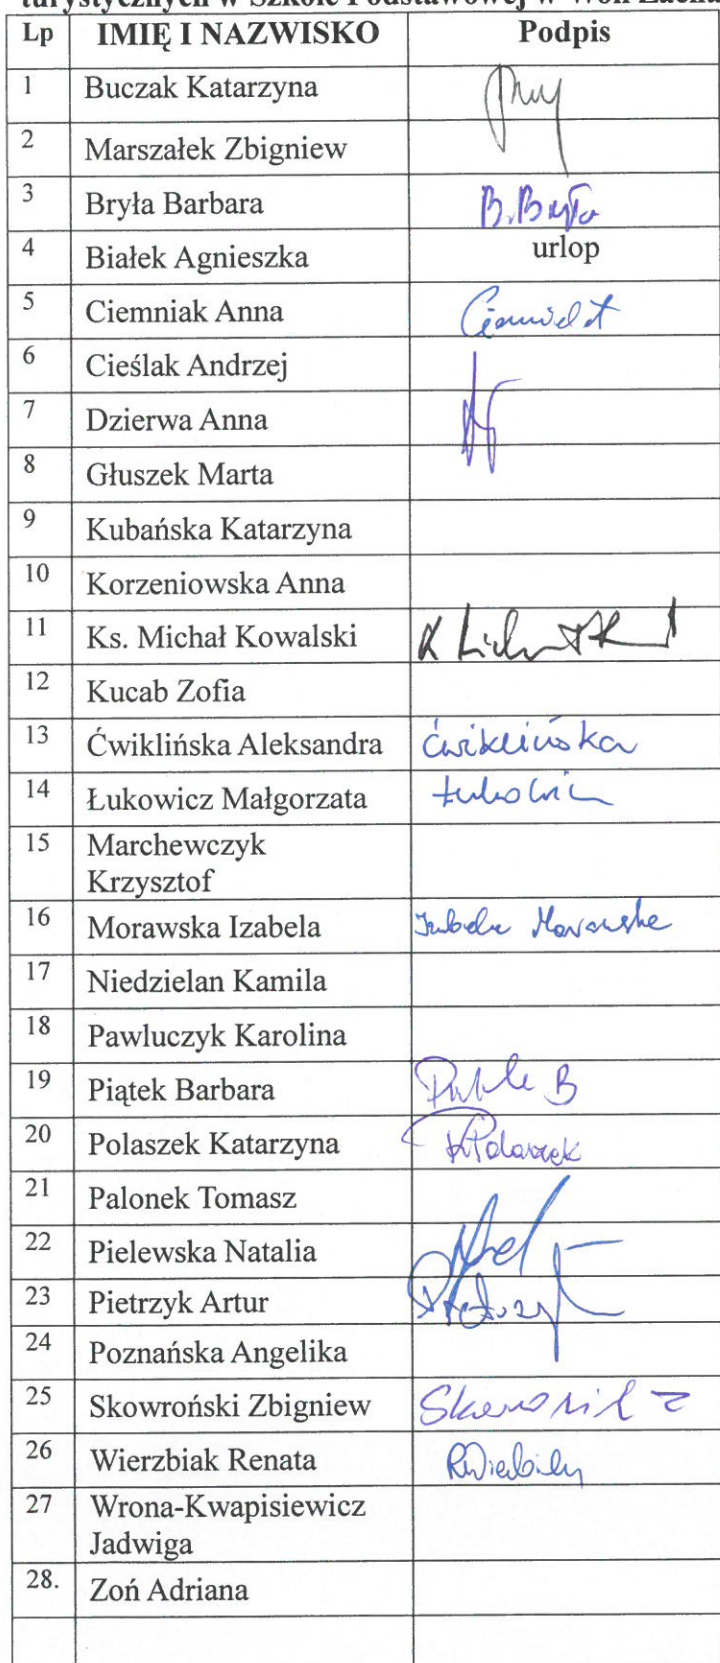 turystycznych w Szkole Podstawowej w Woli Zacha
Lp IMIĘ I NAZWISKO Podpis
1 Buczak Katarzyna
2 Marszałek Zbigniew
3 Bryła Barbara B. Bryła
4 Białek Agnieszka urlop
5 Ciemniak Anna
6 Cieślak Andrzej
7 Dzierwa Anna
8 Głuszek Marta
9 Kubańska Katarzyna
10 Korzeniowska Anna
11 Ks. Michał Kowalski
12 Kucab Zofia
13 Ćwiklińska Aleksandra Ćwiklińska
14 Łukowicz Małgorzata
15 Marchewczyk
Krzysztof
16 Morawska Izabela Izabela Morawska
17 Niedzielan Kamila
18 Pawluczyk Karolina
19 Piątek Barbara
20 Polaszek Katarzyna KPolaszek
21 Palonek Tomasz
22 Pielewska Natalia
23 Pietrzyk Artur
24 Poznańska Angelika
25 Skowroński Zbigniew
26 Wierzbiak Renata
27 Wrona-Kwapisiewicz
Jadwiga
28. Zoń Adriana